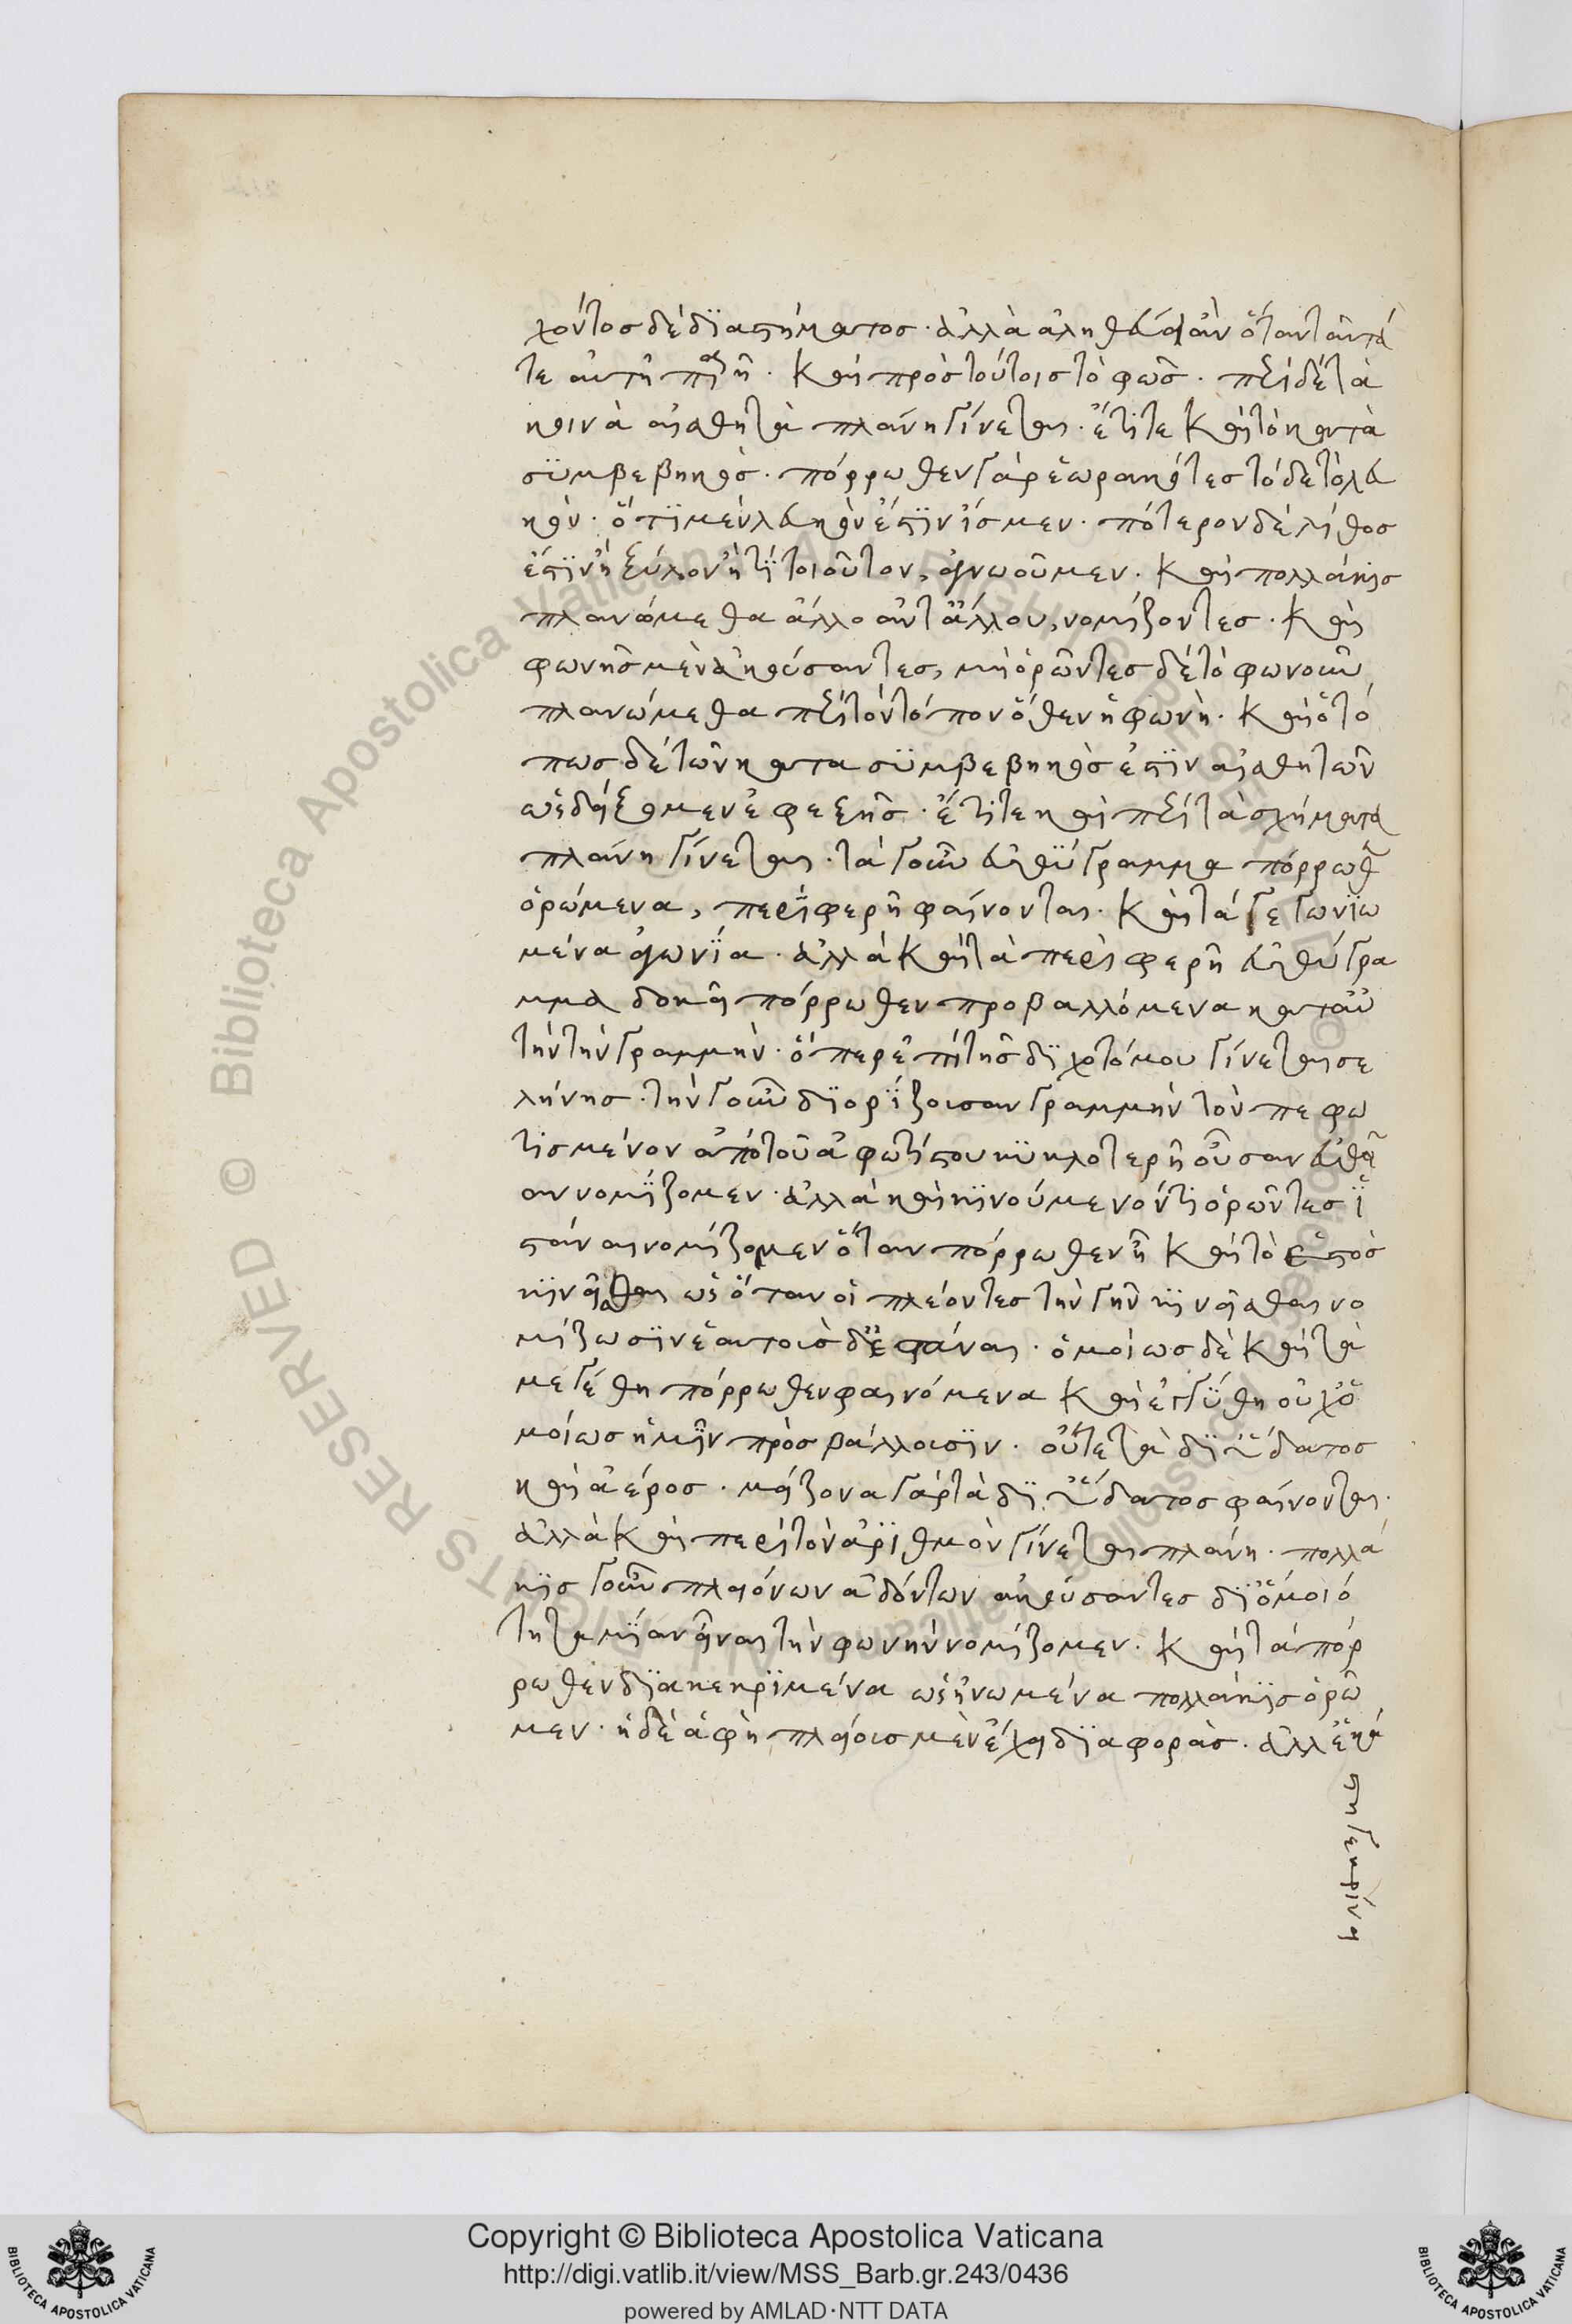 χόντος δὲ διαστήματος· ἀλλὰ ἀληθεύει ἂν ὅταν ταῦτά
τε αὐτῆ παρῆ· καὶ πρὸς τούτοις τὸ φῶς· περὶ δὲ τὰ
κοινὰ αἰσθητὰ πλάνη γίνεται· ἔτι τε καὶ τὸ κατὰ
συμβεβηκός· πόρρωθεν γὰρ ἑωρακότες τόδε τὸ λευ
κόν· ὅτι μὲν λευκόν ἐστιν ἴσμεν· πότερον δὲ λίθος
ἐστὶν ἢ ξύλον ἤ τι τοιοῦτον, ἀγνοοῦμεν· καὶ πολλάκις
πλανώμεθα ἄλλο ἀντ' ἄλλου, νομίζοντες· καὶ
φωνῆς μὲν ἀκούσαντες, μὴ ὁρῶντες δὲ τὸ φωνοῦν
πλανώμεθα περὶ τὸν τόπον ὅθεν ἡ φωνή· καὶ ὁ τό
πος δὲ τῶν κατα συμβεβηκός ἐστιν αἰσθητῶν
ὡς δείξομεν ἐφεξῆς· ἔτι τε καὶ περὶ τὰ σχήματα
πλάνη γίνεται· τὰ γοῦν εὐθύγραμμα πόρρωθεν
ὁρώμενα, περιφερῆ φαίνονται· καὶ τά γε γωνιω
μένα ἀγωνία· ἀλλὰ καὶ τὰ περιφερῆ εὐθύγρα
μμα δοκεῖ πόρρωθεν προβαλλόμενα κατ' αὐ
τὴν τὴν γραμμήν· ὅπερ ἐπὶ τῆς διχοτόμου γίνεται σε
λήνης· τὴν γοῦν διορίζουσαν γραμμὴν τὸν πεφω
τισμένον ἀπὸ τοῦ ἀφωτίστου κυκλοτερῆ οὖσαν εὐθεῖ
αν νομίζομεν· ἀλλὰ καὶ κινούμενόν τι ὁρῶντες ἑ
στάναι νομίζομεν ὅταν πόρρωθεν ἦ καὶ τὸ ἑστὸς
κινεῖσθαι ὡς ὅταν οἱ πλέοντες τὴν γῆν κινεῖσθαι νο
μίζωσιν ἑαυτοὺς δὲ ἑστάναι· ὁμοίως δὲ καὶ τὰ
μεγέθη πόρρωθεν φαινόμενα καὶ ἐγγύθη οὐχ ὁ
μοίως ἡμῖν πρὸς βάλλουσιν· οὔτε τὰ δι' ὕδατος
καὶ ἀέρος· μείζονα γὰρ τὰ δι' ὕδατος φαίνονται·
ἀλλὰ καὶ περὶ τὸν ἀριθμὸν γίνεται πλάνη· πολλά
κις γοῦν πλειόνων ἀδόντων ἀκούσαντες δι' ὁμοιό
τητα μίαν εἶναι τὴν φωνὴν νομίζομεν· καὶ τὰ πόρ
ρωθεν διακεκριμένα ὡς ἡνωμένα πολλάκις ὁρῶ
μεν· ἡ δὲ ἁφὴ πλείους μὲν ἔχει διαφοράς· ἀλλ' ἑκά
στη γε κρίνει
Copyright © Biblioteca Apostolica Vaticana
http://digi.vatlib.it/view/MSS_Barb.gr.243/0436
powered by AMLAD·NTT DATA
BIBLIOTECA APOSTOLICA VATICANA
BIBLIOTECA APOSTOLICA VATICANA